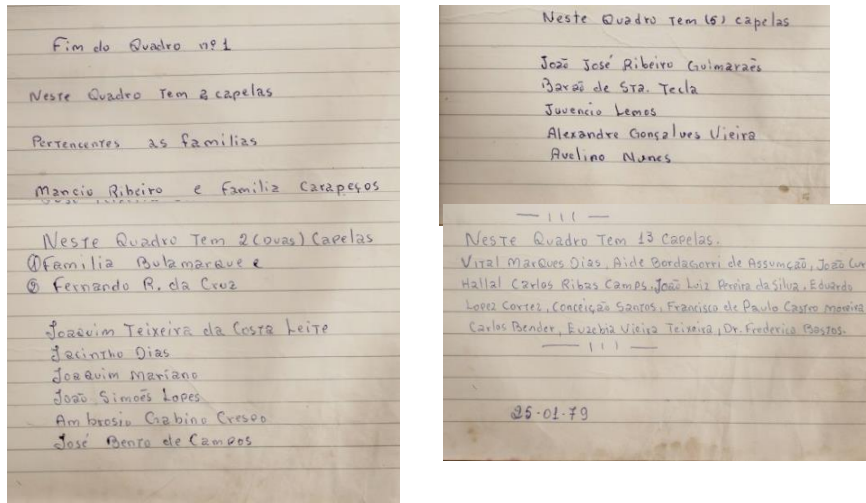 Fim do Quadro nº 1
Neste Quadro Tem 2 capelas
Pertencentes as famílias
Mancio Ribeiro e Familia Carapeços
Neste Quadro Tem 2 (duas) Capelas
① Familia Bulamarque e
② Fernando R. da Cruz
Joaquim Teixeira da Costa Leite
Jacintho Dias
Joaquim Mariano
João Simoẽs Lopes
Ambrosio Gabino Crespo
José Bento de Campos
Neste Quadro Tem (5) capelas
João José Ribeiro Guimaraẽs
Barão de Sta. Tecla
Juvencio Lemos
Alexandre Gonçalves Vieira
Avelino Nunes
— 111 —
Neste Quadro Tem 13 Capelas.
Vital Marques Dias, Aide Bordagorri de Assumção, João
Hallal Carlos Ribas Camps, João Luiz Pereira da Silva, Eduardo
Lopez Cortez, Conceição Santos, Francisca de Paulo Castro Moreira
Carlos Bender, Euzebia Vieira Teixeira, Dr. Frederico Bastos.
— 111 —
25-01-79